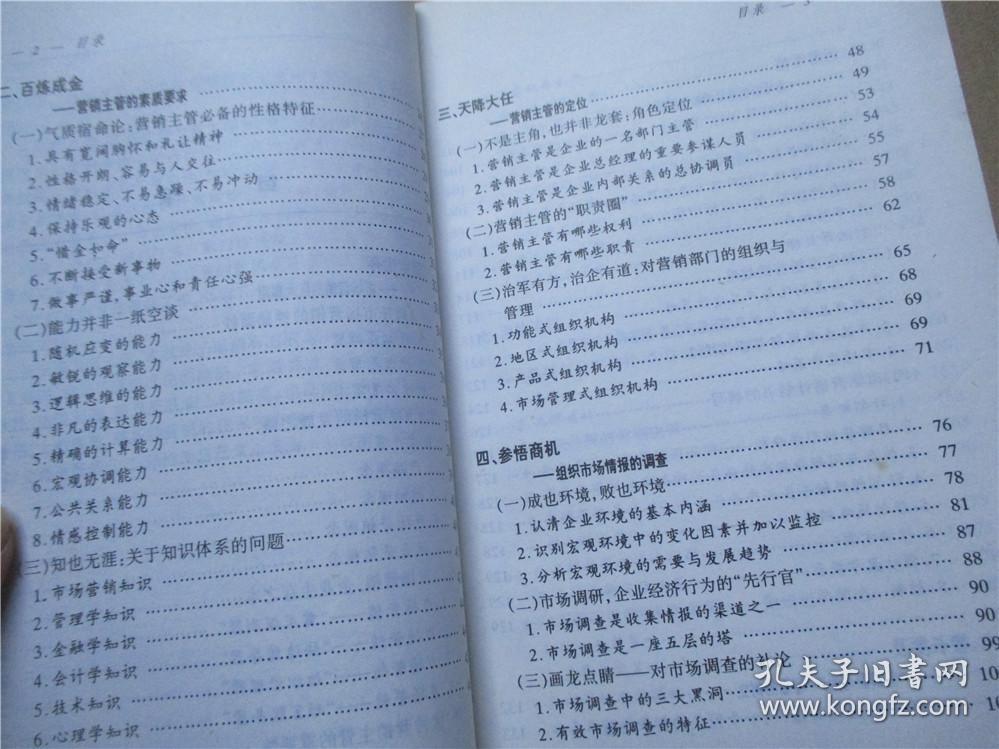 — 2 — 目录
二、百炼成金
——营销主管的素质要求
(一)气质宿命论:营销主管必备的性格特征
1.具有宽阔胸怀和礼让精神
2.性格开朗、容易与人交往
3.情绪稳定、不易急躁、不易冲动
4.保持乐观的心态
5.“惜金如命”
6.不断接受新事物
7.做事严谨,事业心和责任心强
(二)能力并非一纸空谈
1.随机应变的能力
2.敏锐的观察能力
3.逻辑思维的能力
4.非凡的表达能力
5.精确的计算能力
6.宏观协调能力
7.公共关系能力
8.情感控制能力
(三)知也无涯:关于知识体系的问题
1.市场营销知识
2.管理学知识
3.金融学知识
4.会计学知识
5.技术知识
6.心理学知识
目录 — 3
三、天降大任
——营销主管的定位 48
(一)不是主角,也并非龙套:角色定位 49
1.营销主管是企业的一名部门主管
2.营销主管是企业总经理的重要参谋人员 54
3.营销主管是企业内部关系的总协调员 55
(二)营销主管的“职责圈” 57
1.营销主管有哪些权利 58
2.营销主管有哪些职责 62
(三)治军有方,治企有道:对营销部门的组织与
管理 65
1.功能式组织机构 68
2.地区式组织机构 69
3.产品式组织机构 69
4.市场管理式组织机构 71
四、参悟商机
——组织市场情报的调查 76
(一)成也环境,败也环境 77
1.认清企业环境的基本内涵 78
2.识别宏观环境中的变化因素并加以监控 81
3.分析宏观环境的需要与发展趋势 87
(二)市场调研,企业经济行为的“先行官” 88
1.市场调查是收集情报的渠道之一 90
2.市场调查是一座五层的塔 90
(三)画龙点睛——对市场调查的补论 99
1.市场调查中的三大黑洞
2.有效市场调查的特征
孔夫子旧书网
www.kongfz.com